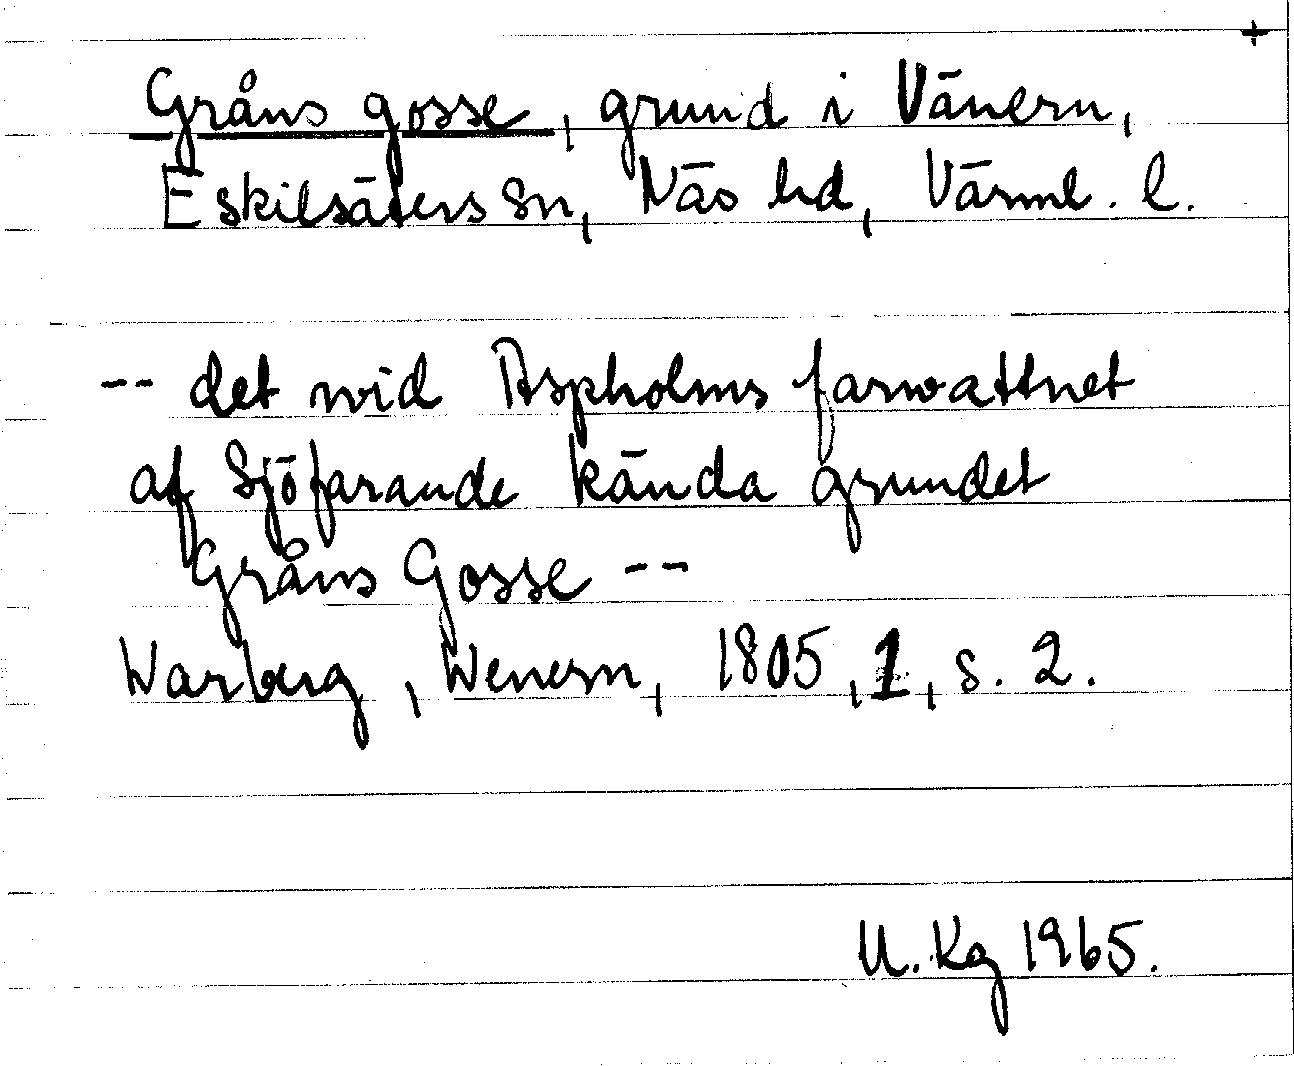 +
Gråns gosse, grund i Vänern,
Eskilsäters sn, Näs hd, Värml. l.
-- det wid Aspholms farwattnet
af Sjöfarande kända grundet
Gråns Gosse --
Warberg, Wenern, 1805, 1, s. 2.
U. Kg 1965.